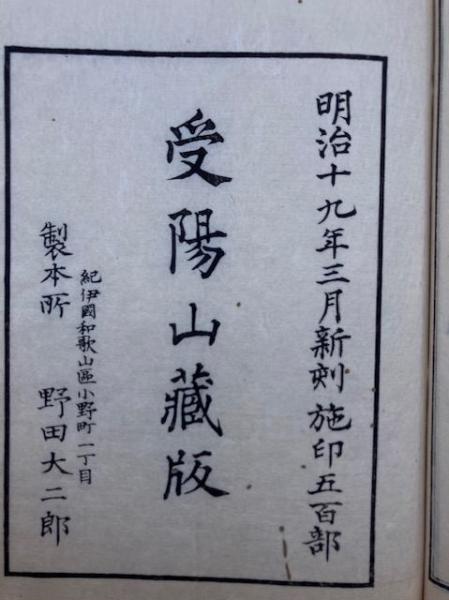 明治十九年三月新刻施印五百部
受陽山藏版
紀伊國和歌山區小野町一丁目
製本所 野田大二郎